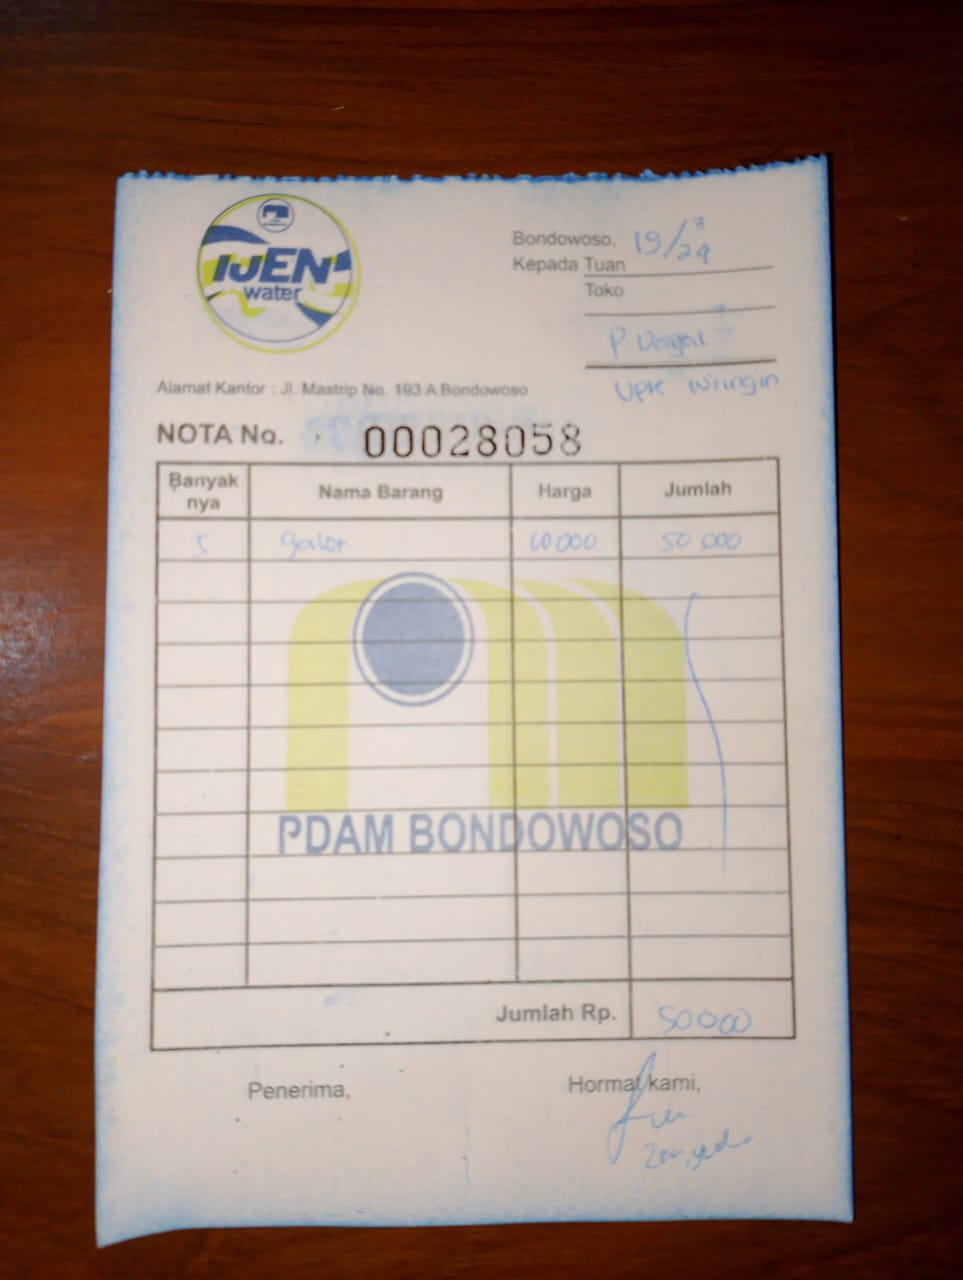 IJEN
water
Bondowoso, 19/3/24
Kepada Tuan
Toko
P
Upk Wringin
Alamat Kantor : Jl. Mastrip No. 193 A Bondowoso
NOTA No. 00028058
Banyak nya Nama Barang Harga Jumlah
5 galon 10.000 50.000
PDAM BONDOWOSO
Jumlah Rp. 50000
Penerima, Hormat kami,